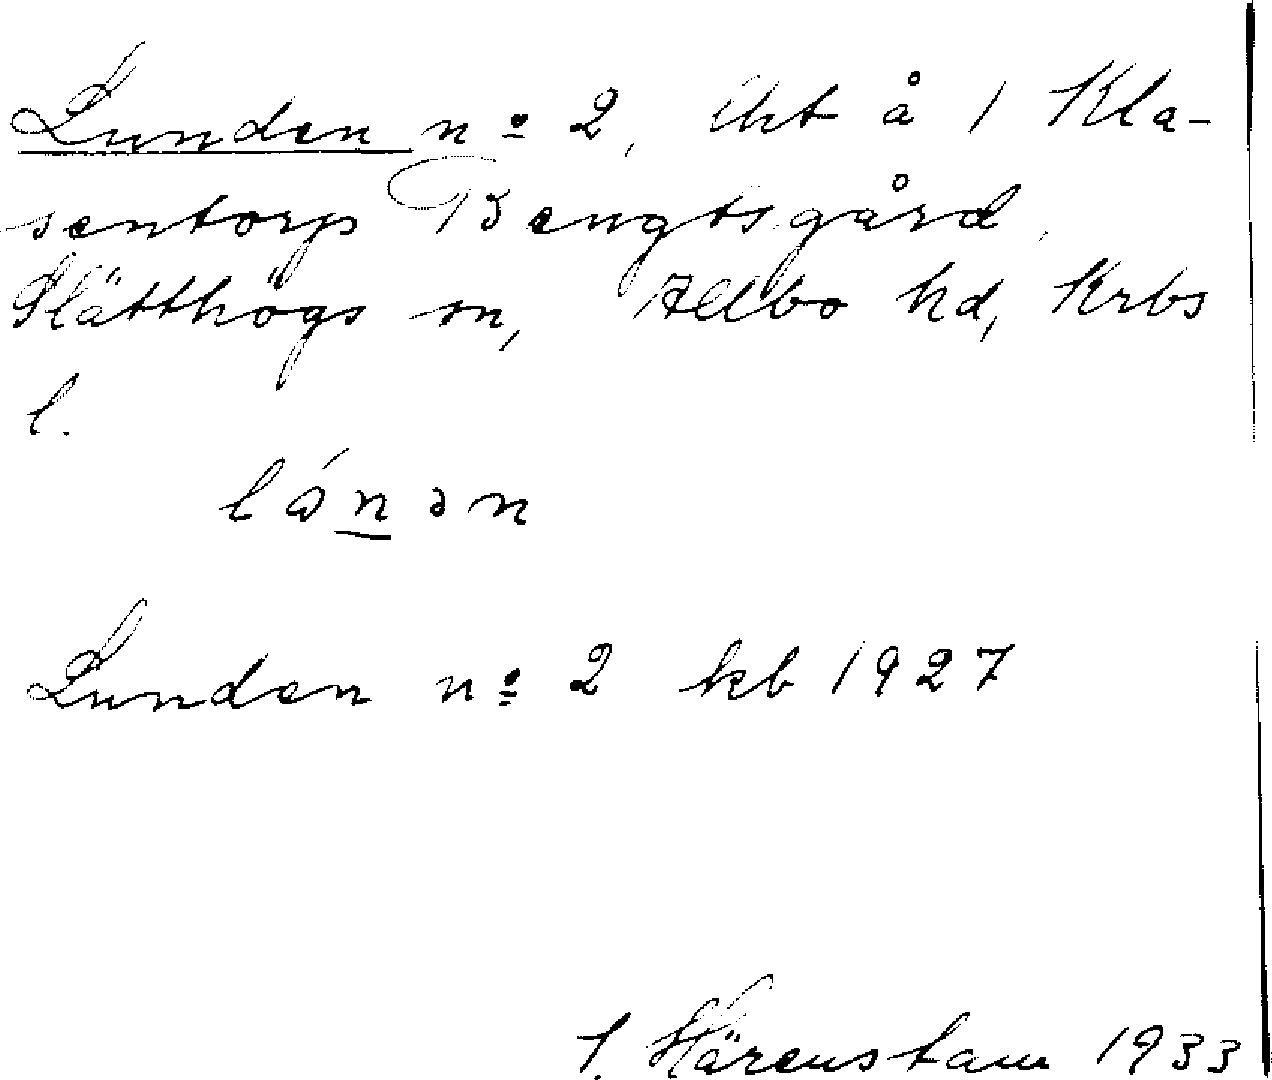 Lunden nº 2, lht å 1 Kla-
sentorp Bengtsgård,
Slätthögs sn, Allbo hd, Krbs
l.
lónən
Lunden nº 2 kb 1927
J. Härenstam 1933